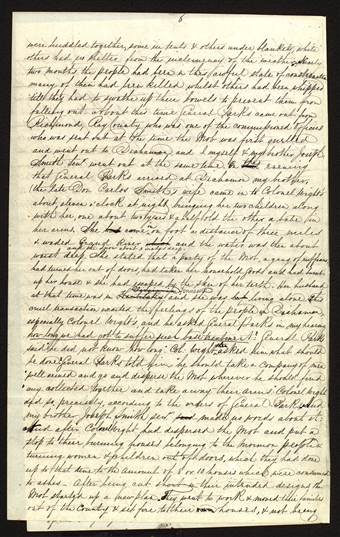 8
were huddled together, some in tents & others under blankets, while
others had no shelter from the inclemency of the weather. Nearly
two months the people had been in this awful state of consternation
many of them had been killed whilst others had been whipped
till they had to swathe up their bowels to prevent them from
falling out. about this time General Parks came out from
Richmond, Ray County who was one of the commissioned officers
who was sent out at the time the Mob was first quelled
and went out to Diahman and I myself & my brother Joseph
Smith sent went out at the same time. On the evening
that General Parks arrived at Diahman my brother,
(the late Don Carlos Smith's) wife came in to Colonel Wight's
about eleven o'clock at night, bringing her two children along
with her, one about two years & a half old the other a babe in
her arms. She came on foot a distance of three miles
& waded Grand River and the water was then about
waist deep. She stated that a party of the Mob, a gang of ruffians
had turned her out of doors, had taken her household goods and had burnt
up her house & she had escaped by the skin of her teeth. Her husband
at that time was in Tennessee and she was living alone. This
cruel transaction excited the feelings of the people in Diahman
especially Colonel Wight's and he asked General Parks in my hearing
how long we had got to suffer such base treatment. General Parks
said he did not know how long. Col. Wight asked him what should
be done? General Parks told him he should take a Company of men
well armed and go and disperse the Mob wherever he should find
any collected together and take away their arms. Colonel Wight
did so precisely, according to the orders of General Parks and
my brother Joseph Smith sen made no words about it.
And after Colonel Wight had dispersed the Mob and put a
stop to their burning houses belonging to the Mormon people &
turning women & children out of doors, which they had done
up to that time to the amount of 8 or 10 houses which were consumed
to ashes. After being cut short in their intended designs the
Mob started up a new plan. They went to work & moved their families
out of the County & set fire to their houses, & not being